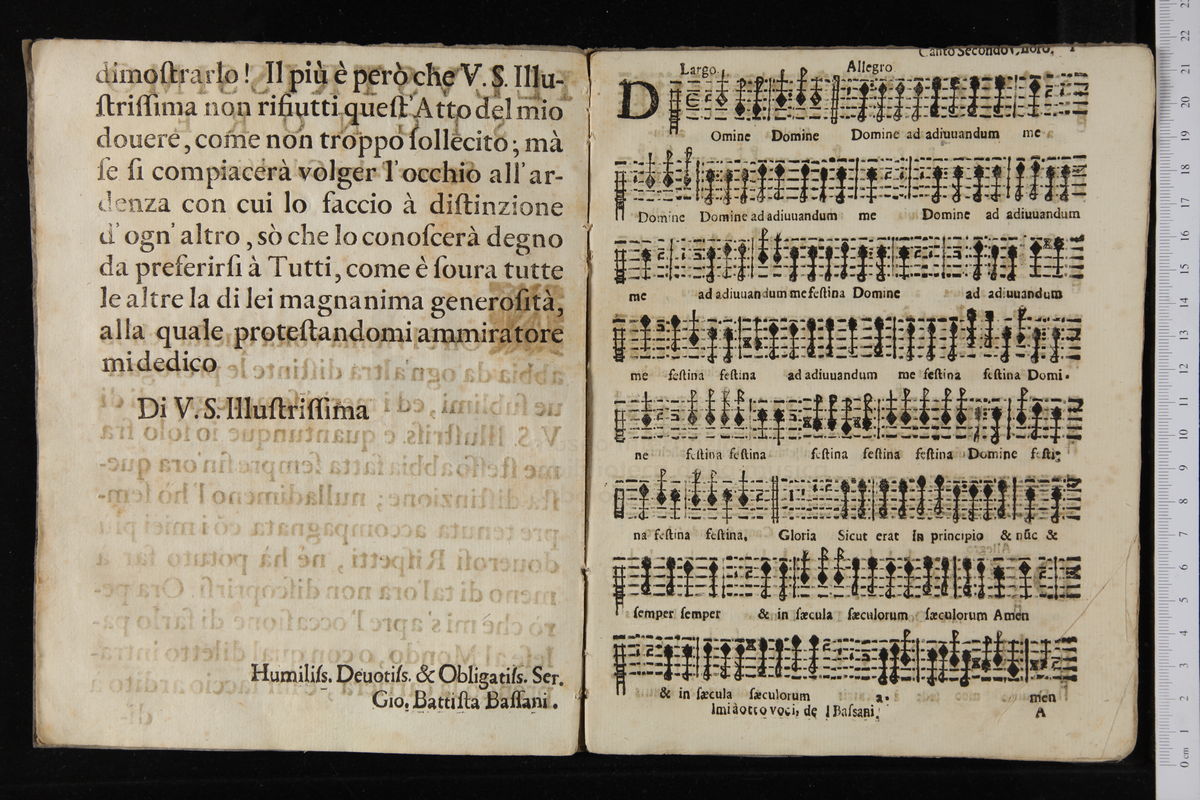 dimoſtrarlo! Il più è però che V. S. Illu-
ſtriſſima non rifiutti queſt'Atto del mio
douere, come non troppo ſollecito; mà
ſe ſi compiacerà volger l'occhio all'ar-
denza con cui lo faccio à diſtinzione
d'ogn'altro, sò che lo conoſcerà degno
da preferirſi à Tutti, come è ſoura tutte
le altre la di lei magnanima generoſità,
alla quale proteſtandomi ammiratore
mi dedico
Di V. S. Illuſtriſſima
Humiliſs. Deuotiſs. & Obligatiſs. Ser.
Gio. Battiſta Baſſani.
Canto Secondo
Largo Allegro
D
Omine Domine Domine ad adiuuandum me
Domine Domine ad adiuuandum me Domine ad adiuuandum
me ad adiuuandum me feſtina Domine ad adiuuandum
me feſtina feſtina ad adiuuandum me feſtina feſtina Domi-
ne feſtina feſtina feſtina feſtina feſtina Domine feſti-
na feſtina feſtina, Gloria Sicut erat In principio & nũc &
ſemper ſemper & in ſæcula ſæculorum ſæculorum Amen
& in ſæcula ſæculorum a- men
lmi à otto voci, de l Baſsani, A
0 cm 1 2 3 4 5 6 7 8 9 10 11 12 13 14 15 16 17 18 19 20 21 22